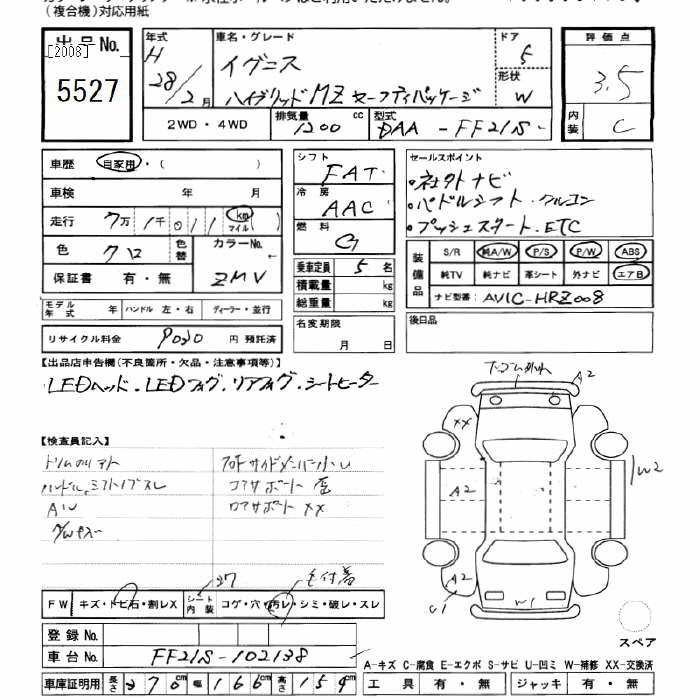 （複合機）対応用紙
出品No. 年式 車名・グレード ドア 評価点
[2008] H イグニス 5 3.5
5527 28/2月 ハイブリッドMZ セーフティパッケージ 形状 W
2WD・4WD 排気量 1200 cc 型式 DAA-FF21S- 内装 C
車歴 自家用・（ ） シフト FAT セールスポイント
車検 年 月 冷房 AAC ・社外ナビ
走行 7万1千011 km マイル 燃料 G ・パドルシフト．クルコン
色 クロ 色替 カラーNo. ZMV ・プッシュスタート．ETC
保証書 有・無 乗車定員 5名
装備品 S/R 純A/W P/S P/W ABS
積載量 kg 純TV 純ナビ 革シート 外ナビ エアB
モデル年式 年 ハンドル 左・右 ディーラー・並行 総重量 kg ナビ型番： AVIC-HRZ008
リサイクル料金 円 預託済 名変期限 月 日 後日品
【出品店申告欄（不良箇所・欠品・注意事項等）】
・LEDヘッド．LEDフォグ．リアフォグ．シートヒーター
A2
【検査員記入】
XX
フロントサイドメンバー小レ
W2
コアサポート 歪
A2
AW
ロアサポート XX
A2
W1
FW キズ・トビ石・割レX シート内装 コゲ・穴・汚レ・シミ・破レ・スレ
登録No.
車台No. FF21S-102138 スペア
A-キズ C-腐食 E-エクボ S-サビ U-凹ミ W-補修 XX-交換済
車庫証明用 長さ 370cm 幅 166cm 高さ 159cm 工具 有・無 ジャッキ 有・無